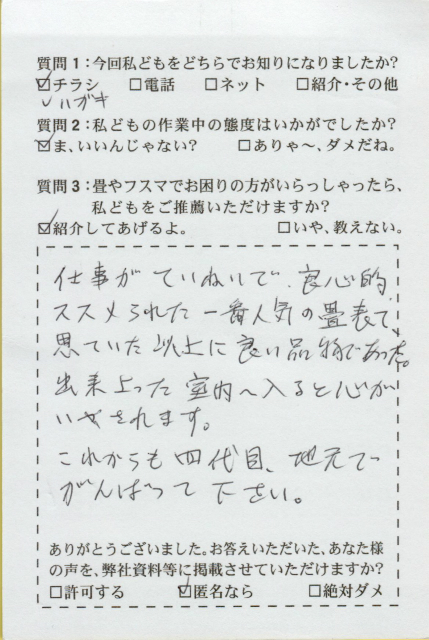 質問1:今回私どもをどちらでお知りになりましたか?
☑チラシ □電話 □ネット □紹介・その他
ハガキ
質問2:私どもの作業中の態度はいかがでしたか?
☑ま、いいんじゃない? □ありゃ〜、ダメだね。
質問3:畳やフスマでお困りの方がいらっしゃったら、
私どもをご推薦いただけますか?
☑紹介してあげるよ。 □いや、教えない。
仕事がていねいで、良心的
ススメられた一番人気の畳表で、
思ていた以上に良い品物であった。
出来上った室内へ入ると心が
いやされます。
これからも四代目、地元で
がんばって下さい。
ありがとうございました。お答えいただいた、あなた様
の声を、弊社資料等に掲載させていただけますか?
□許可する ☑匿名なら □絶対ダメ